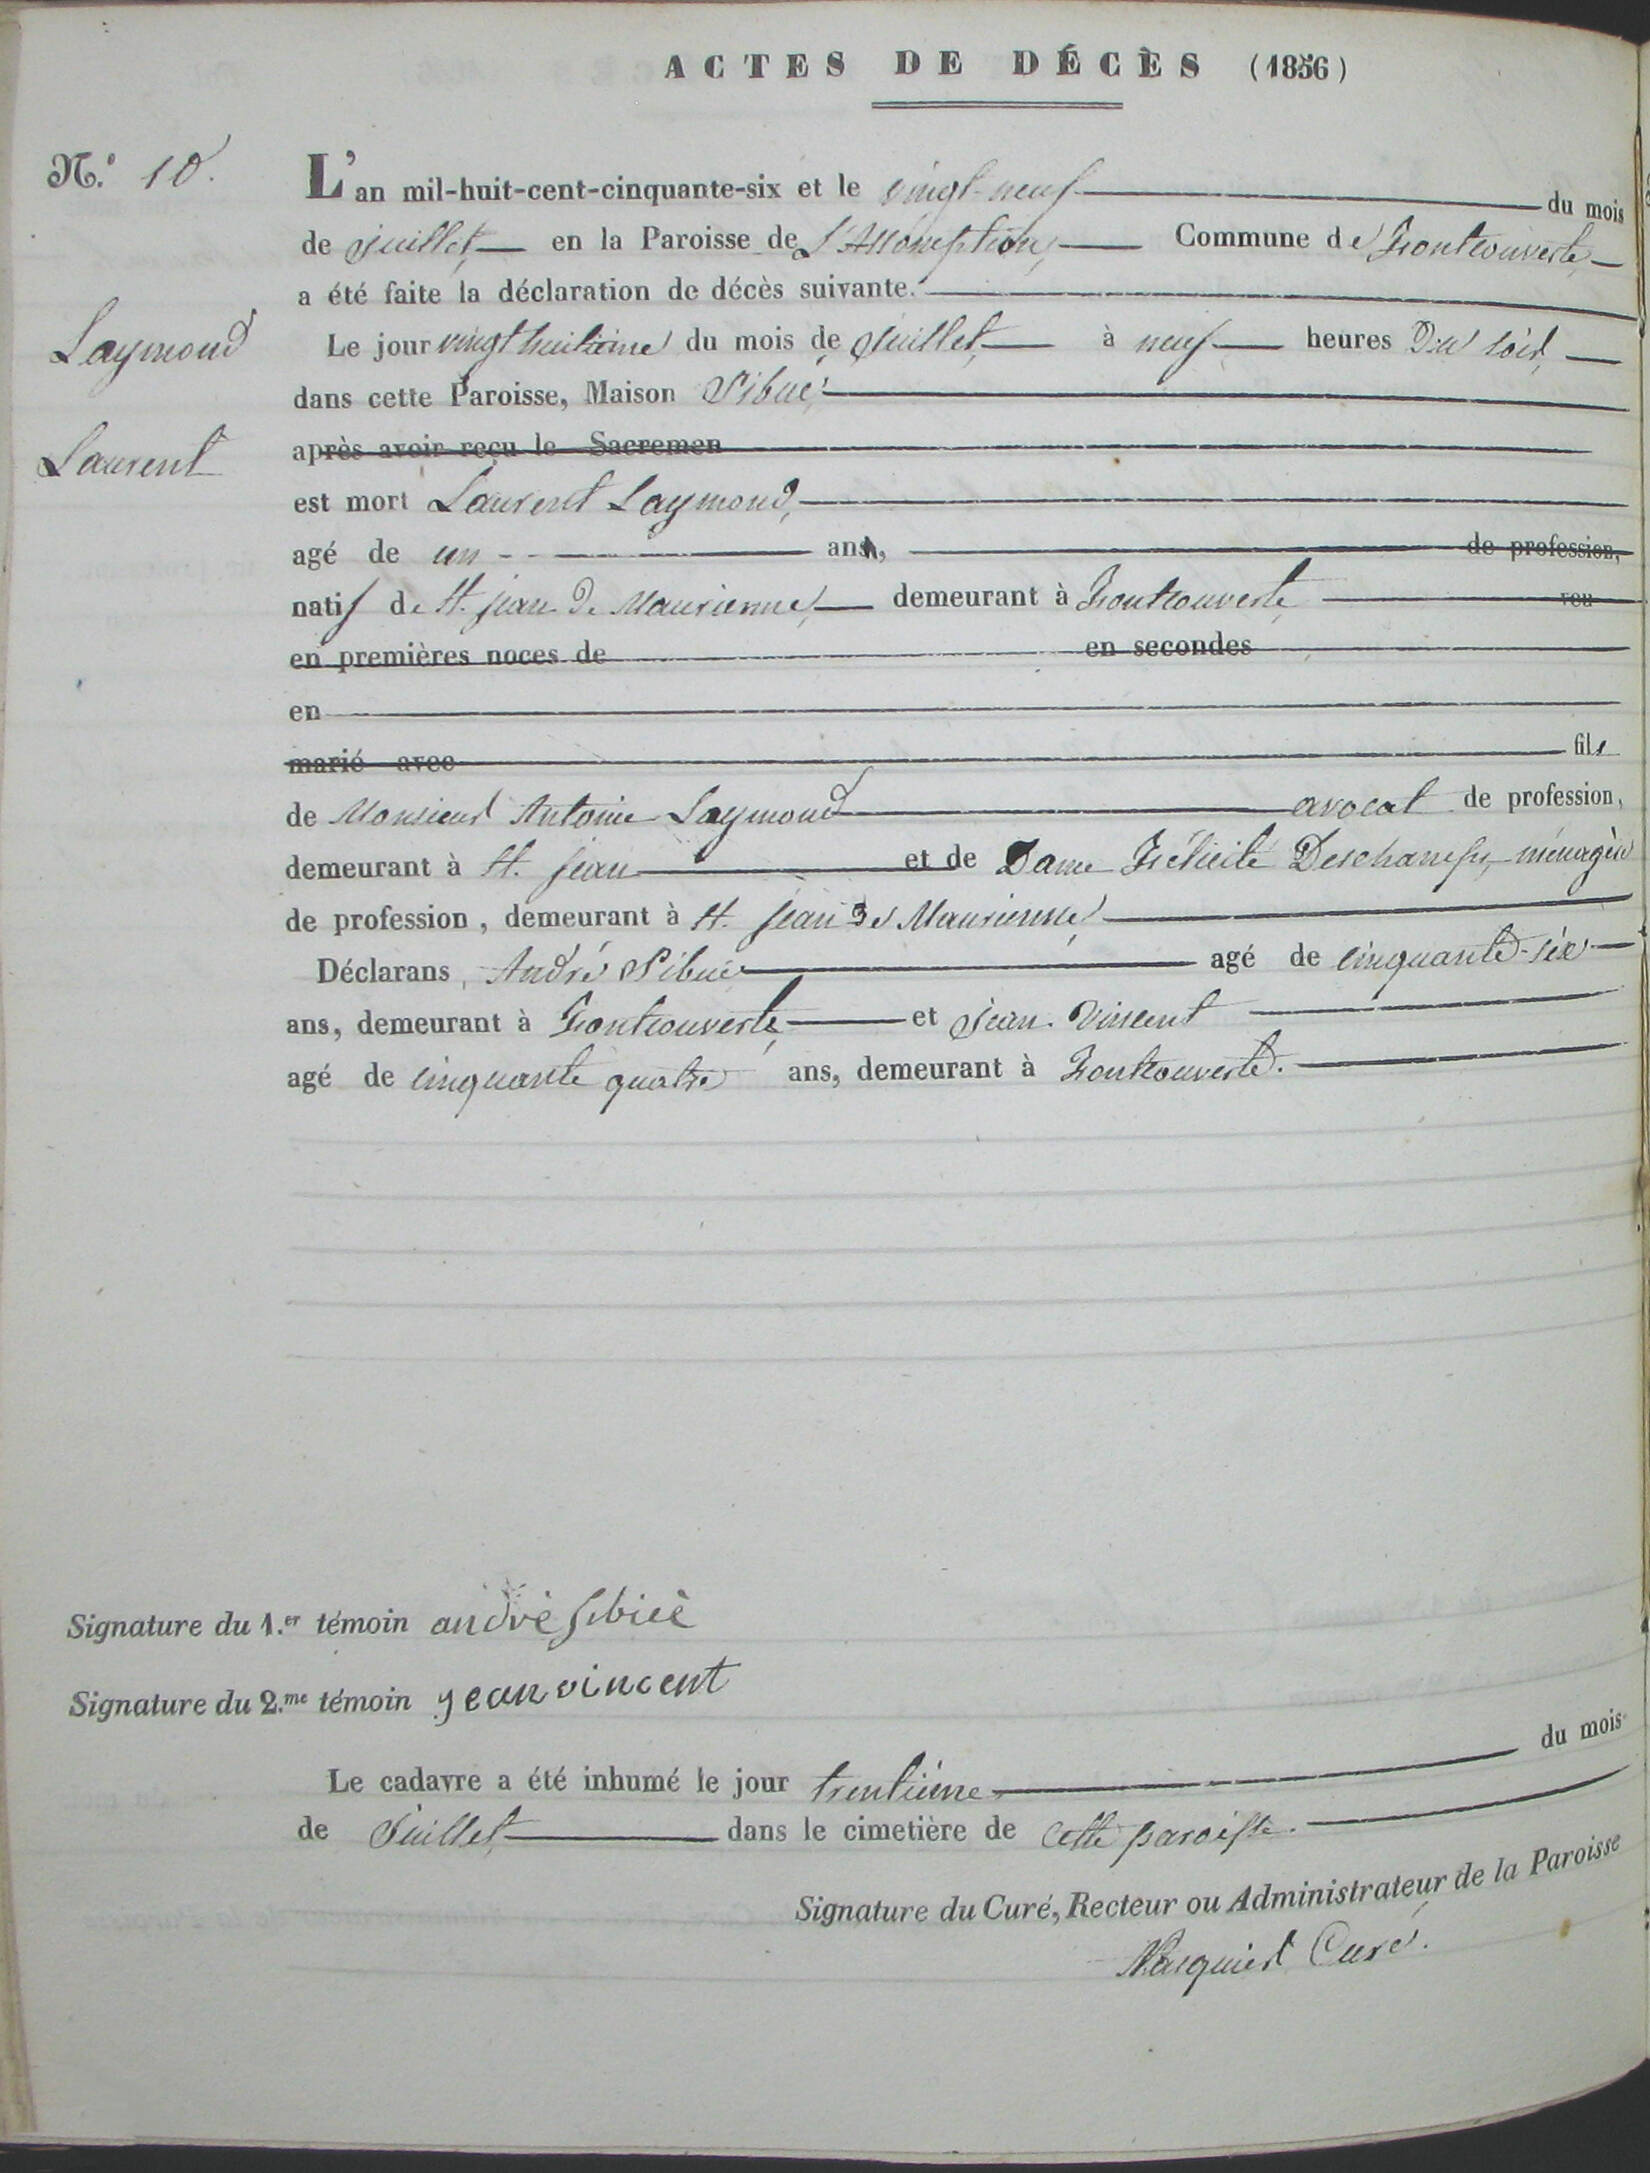 ACTES DE DÉCÈS (1856)
N.º 10.
L'an mil-huit-cent-cinquante-six et le vingt-neuf du mois
de juillet, en la Paroisse de L'Assomption, Commune de Fontcouverte,
a été faite la déclaration de décès suivante.
Laymond
Le jour vingt huitième du mois de juillet, à neuf heures du soir,
dans cette Paroisse, Maison Sibué,
Laurent
après avoir reçu le Sacremen
est mort Laurent Laymond,
agé de un an, de profession,
natif de St. jean de Maurienne, demeurant à Fontcouverte, veu
en premières noces de en secondes
en
marié avec fils
de Monsieur Antoine Laymond avocat de profession,
demeurant à St. jean et de Dame Félicité Deschamps, ménagère
de profession, demeurant à St. jean de Maurienne,
Déclarans, André Sibué agé de cinquante-six
ans, demeurant à Fontcouverte, et jean Vincent
agé de cinquante quatre ans, demeurant à Fontcouverte.
Signature du 1.er témoin andrè sibiè
Signature du 2.me témoin jean vincent
Le cadavre a été inhumé le jour trentième du mois
de Juillet, dans le cimetière de cette paroisse.
Signature du Curé, Recteur ou Administrateur de la Paroisse
Curé.